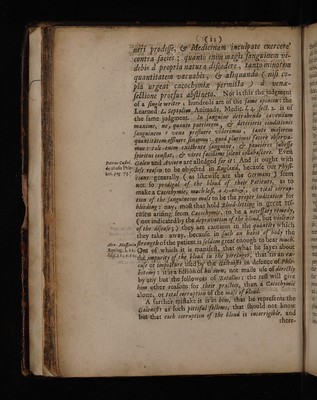 (11)
neri prodesse, & Medicinam inculpate exercere
contra facies: quanto enim magis sanguinem videbis
à propria natura discedere, tanto minorem
quantitatem vacuabis, & aliquando (nisi copia
urgeat cacochymiæ permista) à venæsectione
prorsus abstineto. Nor is this the judgment
of a single writer; hundreds are of the same opinion: the
Learned L. Septalius, Animadv. Medic. l. sect. 2. is of
the same judgment. In sanguine detrahendo cavendum
maxime, ne, quanto putriorem, & deteriorem
sanguinem è vena profluere viderimus, tanto majorem
quantitatem effluere sinamus,
spiritus constat, & vires facillime solent collabascere. Even
Galen and Avicen are alledged for it: And it ought with
less reason to be objected in England, because our Physicians
generally (as likewise are the Germans) seem
not so prodigal of the blood of their Patients, as to
make a Cacochymie, much less, a or total corruption
of the sanguineous mass to be the proper indication for
bleeding: nay, most that hold Blood-letting in great diseases
arising from Cacochymie, to be a necessary remedy,
(not indicated by the depravation of the blood, but violence
of the disease;) they are cautious in the quantity which
they take away, because in such an habit of body the
strength of the patient is seldom great enough to bear much.
Out of which it is manifest, that what he sayes about
the impurity of the blood in the porringer, that 'tis an excuse
or imposture used by the Galenists in defence of Phlebotomy:
it is a fiction of his own, not made use of directly
by any but the followers of Botallus: the rest will give
him other reasons for their practice, than a Cacochymie
alone, or total corruption of the mass of blood.
A further mistake it is in him, that he represents the
Galenists as such pitiful fellows, that should not know
but that each corruption of the blood is incorrigible, and
there-